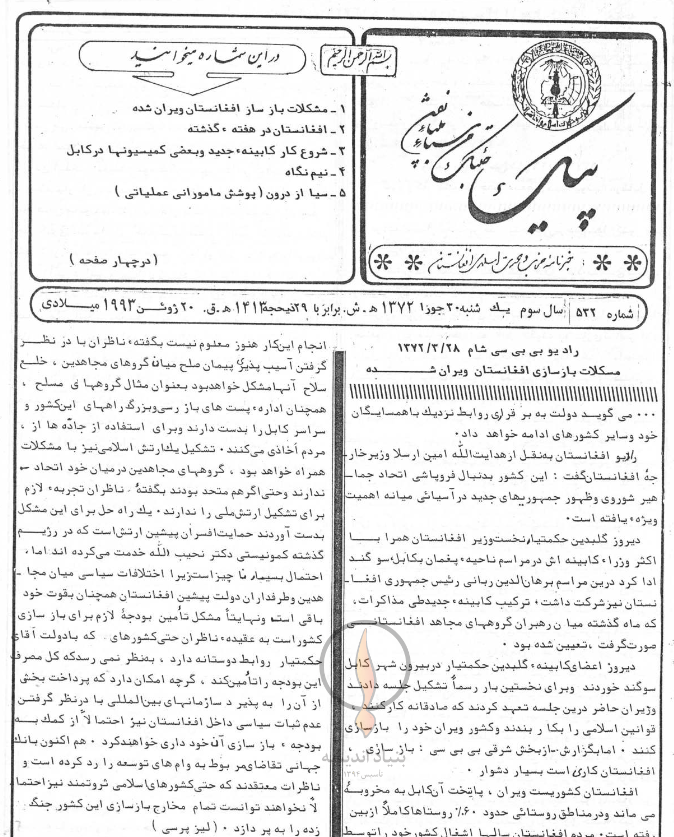 بسم الله الرحمن الرحیم
در این شماره میخوانید
۱ ـ مشکلات باز ساز افغانستان ویران شده
۲ ـ افغانستان در هفته ء گذشته
۳ ـ شروع کار کابینه ء جدید وبعضی کمیسیونها در کابل
۴ ـ نیم نگاه
۵ ـ سیا از درون ( پوشش ماموراتی عملیاتی )
( در چهار صفحه )
پیک
خبرنامه حزب وحدت اسلامی افغانستان
شماره ۵۳۲ سال سوم یک شنبه ۳۰ جوزا ۱۳۷۲ هـ . ش . برابر با ۲۹ ذیحجة ۱۴۱۳ هـ . ق . ۲۰ ژوئن ۱۹۹۳ میلادی
رادیو بی بی سی شام ۱۳۷۲/۳/۲۸
مسکلات باز سازی افغانستان ویران شـــده
۰۰۰ می گوید دولت به بر قراری روابط نزدیک با همسایگان
خود وسایر کشورهای ادامه خواهد داد ۰
رادیو افغانستان به نقل از هدایت الله امین ارسلا وزیر خار ـ
جهٔ افغانستان گفت : این کشور بدنبال فروپاشی اتحاد جما ـ
هیر شوروی وظهور جمهوریهای جدید در آسیائی میانه اهمیت
ویژه ء یافته است ۰
دیروز گلبدین حکمتیار نخست وزیر افغانستان همرا بـــا
اکثر وزراء کابینه اش در مراسم ناحیه ء پغمان بکابل سو گند
ادا کرد درین مراسم برهان الدین ربانی رئیس جمهوری افغا ـ
نستان نیز شرکت داشت ۰ ترکیب کابینه ء جدید طی مذاکرات ،
که ماه گذشته میان رهبران گروههای مجاهد افغانستانـــ
صورت گرفت ، تعیین شده بود ۰
دیروز اعضای کابینه ء گلبدین حکمتیار در بیرون شهر کابل
سوگند خوردند وبرای نخستین بار رسماً تشکیل جلسه دادند
وزیران حاضر درین جلسه تعهد کردند که صادقانه کار کنند
قوانین اسلامی را بکار بندند وکشور ویران خود را باز سازی
کنند ۰ اما بگزارش ـ از بخش شرقی بی بی سی : باز سازی ،
افغانستان کاری است بسیار دشوار ۰
افغانستان کشوریست ویران ، پایتخت آن کابل به مخروبهٔ
می ماند ودر مناطق روستائی حدود ۶۰٪ روستاها کاملاً از بین
رفته است ۰ مردم افغانستان سالها اشغال کشور خود را توسط
انجام این کار هنوز معلوم نیست بگفته ء ناظران با در نظـر
گرفتن آسیب پذیری پیمان صلح میان گروهای مجاهدین ، خلع
سلاح آنها مشکل خواهد بود بعنوان مثال گروههای مسلح ،
همچنان اداره ء پست های باز رسی وبزرگ راههای این کشور و
سراسر کابل را بدست دارند وبرای استفاده از جاده ها از ،
مردم اخاذی می کنند ۰ تشکیل یک ارتش اسلامی نیز با مشکلات
همراه خواهد بود ، گروههای مجاهدین در میان خود اتحاد ـ
ندارند وحتی اگر هم متحد بودند بگفتهٔ ناظران تجربه ء لازم
برای تشکیل ارتش ملی را ندارند ۰ یک راه حل برای این مشکل
بدست آوردند حمایت افسران پیشین ارتش است که در رژیم
گذشته کمونیستی دکتر نجیب الله خدمت می کرده اند اما،
احتمال بسیار نا چیز است زیرا اختلافات سیاسی میان مجا ـ
هدین وطرفداران دولت پیشین افغانستان همچنان بقوت خود
باقی است ونهایتاً مشکل تأمین بودجهٔ لازم برای باز سازی
کشور است به عقیده ء ناظران حتی کشورهای که با دولت آقای
حکمتیار روابط دوستانه دارد ، به نظر نمی رسد که کل مصرف
این بودجه را تأمین کند ، گرچه امکان دارد که پرداخت بخش
از آن را به پذیر د سازمانهای بین المللی با در نظر گرفتن
عدم ثبات سیاسی داخل افغانستان نیز احتمالاً از کمک بـه
بودجه ء باز سازی آن خود داری خواهند کرد ۰ هم اکنون بانک
جهانی تقاضای مر بوط به وام های توسعه را رد کرده است و
ناظرات معتقدند که حتی کشورهای اسلامی ثروتمند نیز احتما ـ
لاً نخواهند توانست تمام مخارج باز سازی این کشور جنگ
زده را به پر دازد ۰ ( لیز پرسی )
بنیاد اندیشه
تاسیس ۱۳۹۴